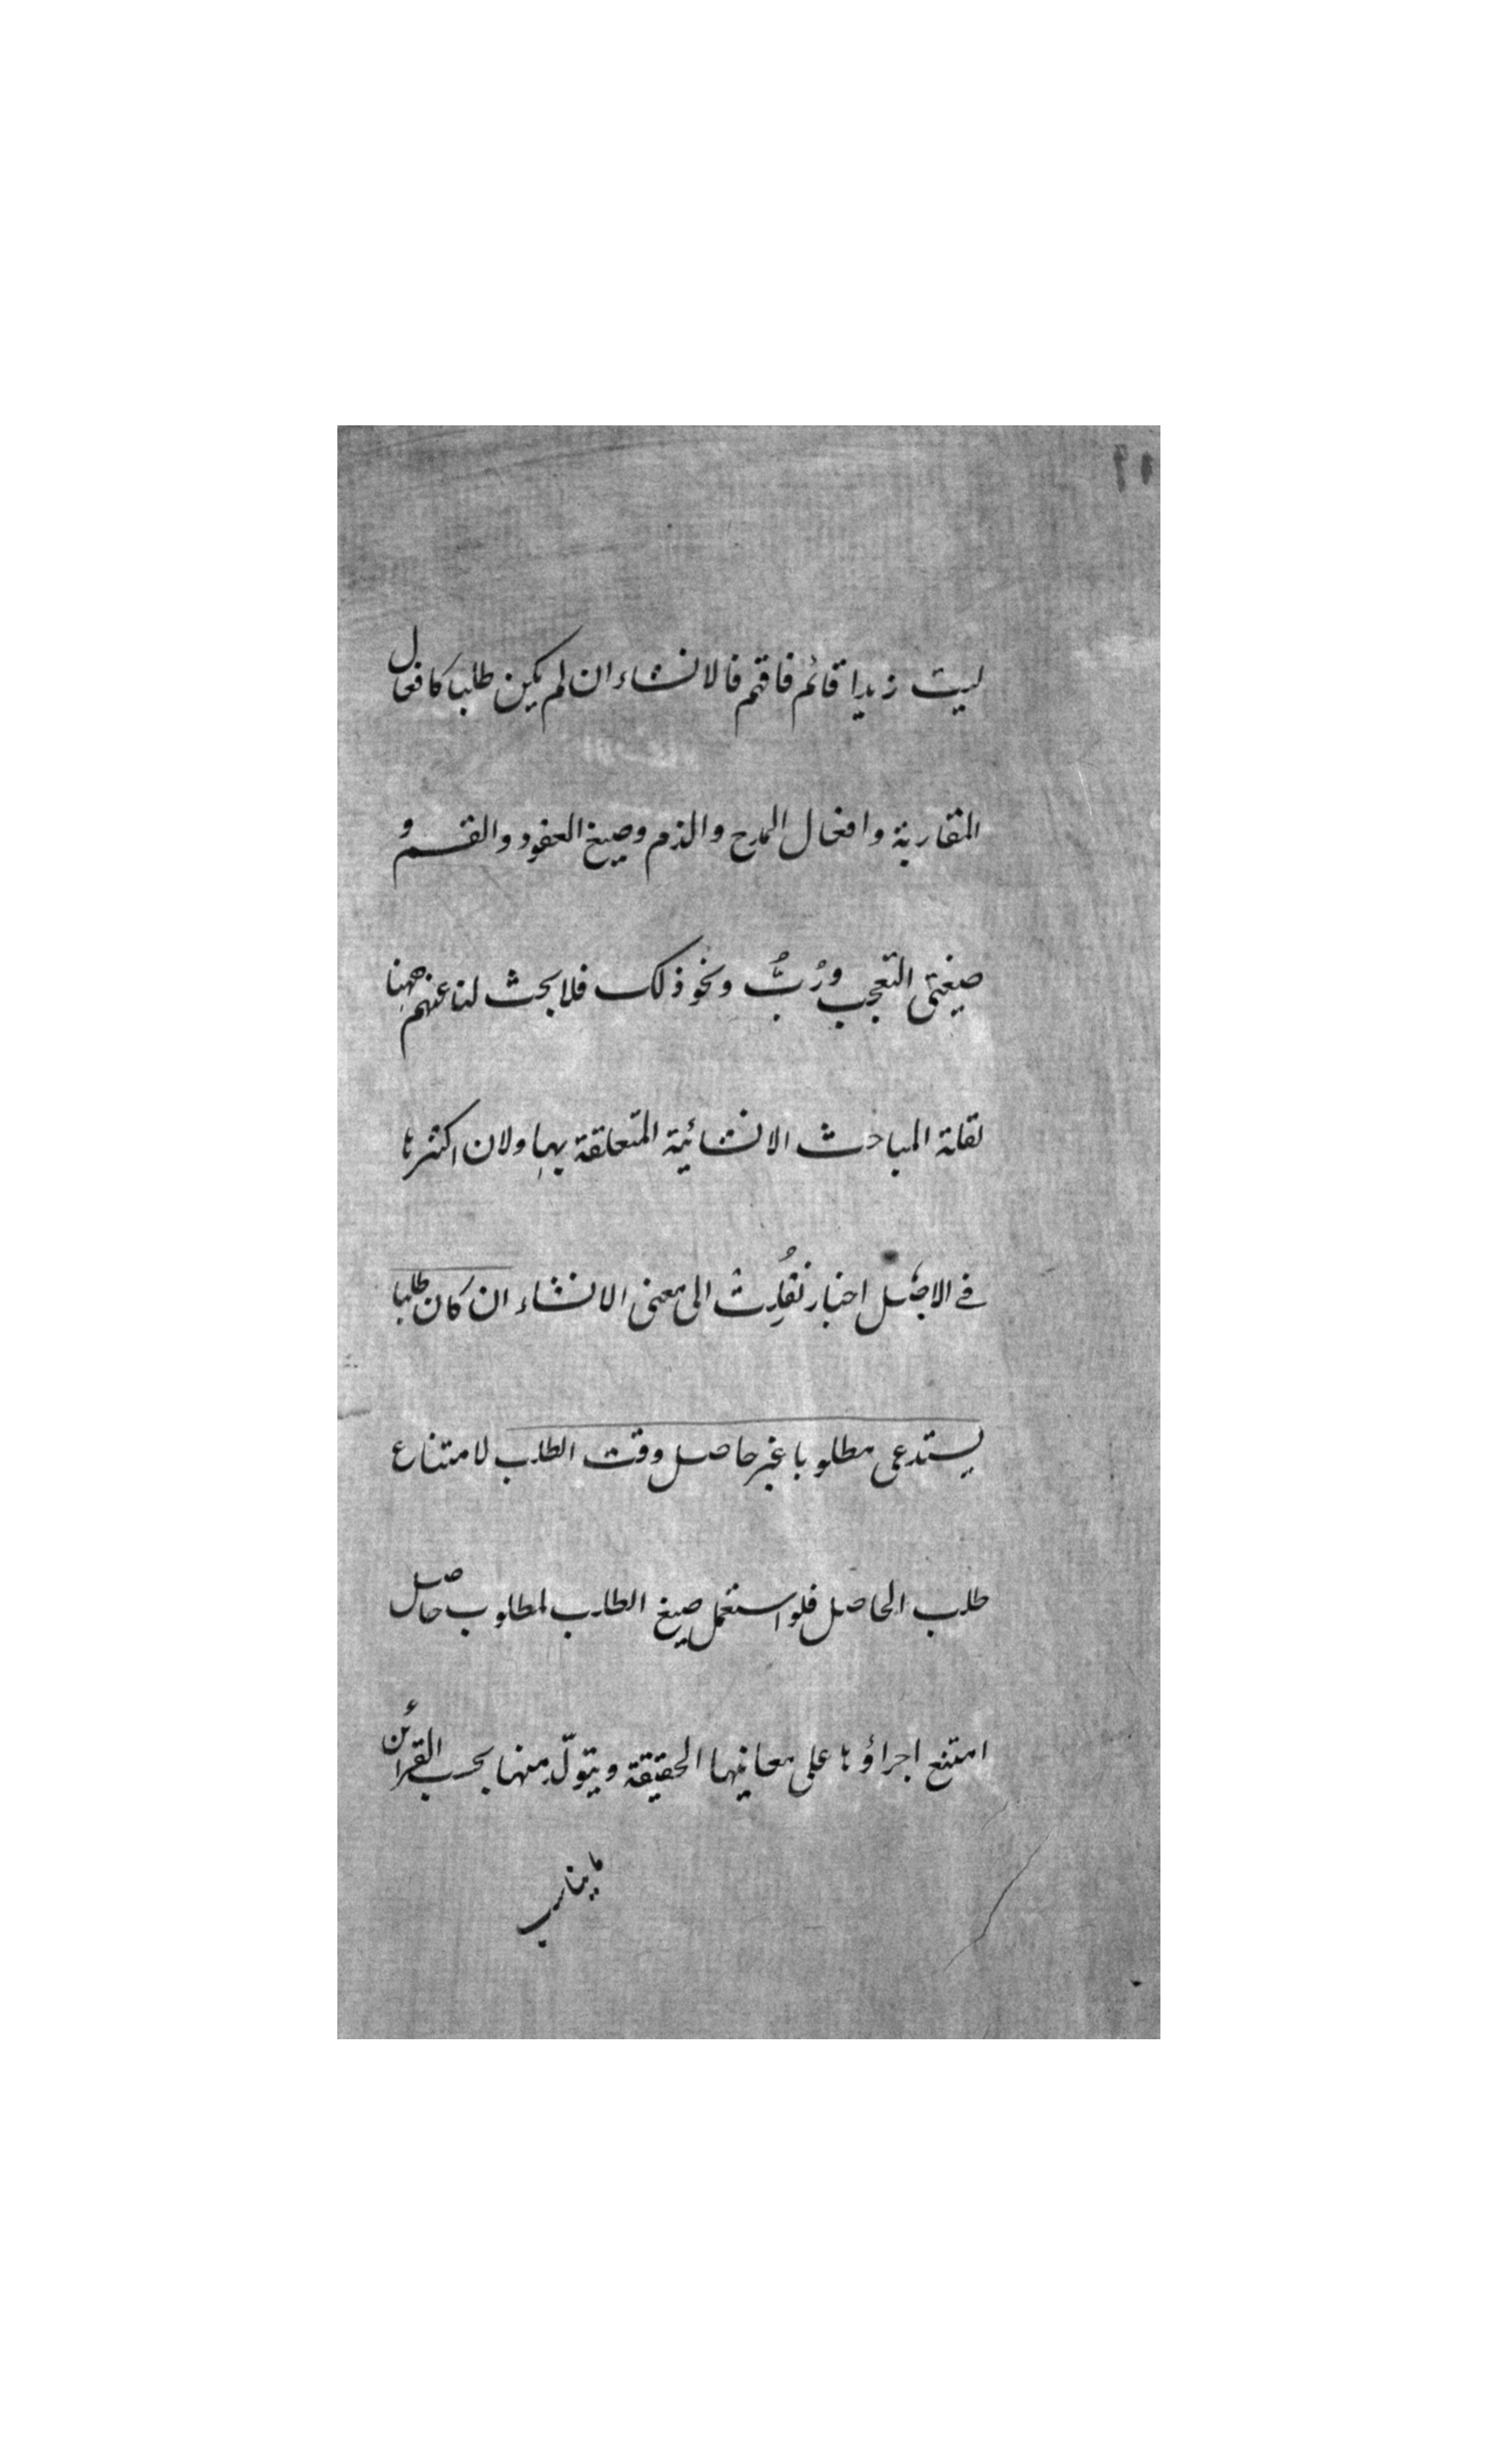 ليت زيدا قائم فافهم فالانشاء ان لم يكن طلبا كافعال
المقاربة وافعال المدح والذم وصيغ العقود والقسم و
صيغتى التعجب ورُبَّ ونحو ذلك فلا بحث لنا عنهم ههنا
لقلة المباحث الانشائية المتعلقة بها ولان اكثرها
فے الاصل اخبار نقُلِت الى معنى الانشاء ان كان طلبا
يستدعى مطلوبا غير حاصل وقت الطلب لامتناع
طلب الحاصل فلو استعمل صيغ الطلب لمطلوب حاصل
امتنع اجراؤها على معانيها الحقيقة ويتولّد منها بحسب القرائن
ما يناسب